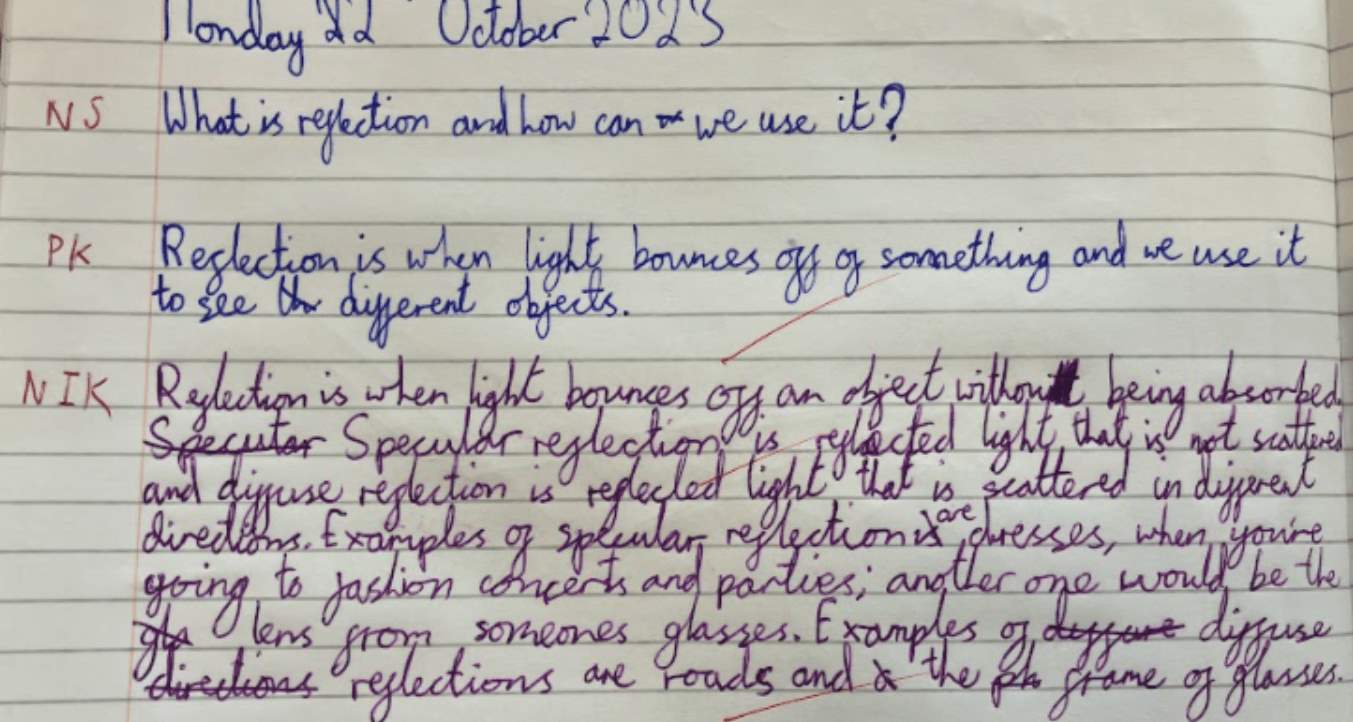 Monday 22 October 2023
NS What is reflection and how can we use it?
PK Reflection is when light bounces off of something and we use it
to see different objects.
NIK Reflection is when light bounces off an object without being absorbed.
Specular Specular reflection is reflected light that is not scattered
and diffuse reflection is reflected light that is scattered in different
directions. Examples of specular reflection are dresses, when you're
going to fashion concerts and parties; another one would be the
gla lens from someones glasses. Examples of diffuse
directions reflections are roads and the frame of glasses.